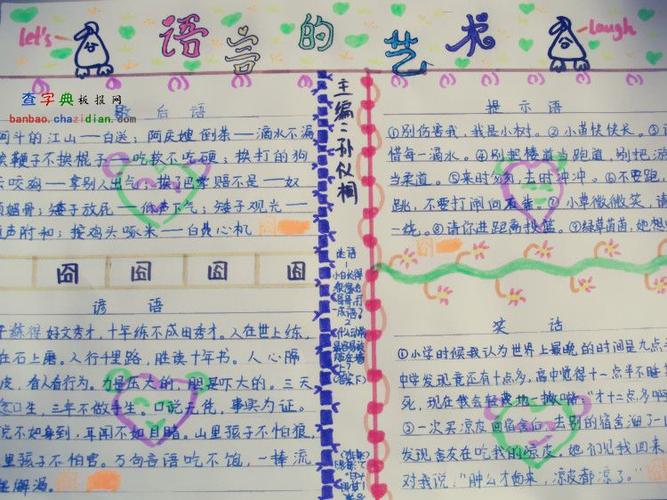 let's
语言的艺术
laugh
查字典板报网
banbao.chazidian.com
歇后语
阿斗的江山——白送；阿庆嫂倒茶——滴水不漏
挨鞭子不挨棍子——吃软不吃硬；挨打的狗
去咬鸡——拿别人出气；挨了巴掌赔不是——奴
颜媚骨；矮子放屁——低声下气；矮子观光——
随声附和；按鸡头啄米——白费心机
囧 囧 囧 囧
谚语
好文秀才，十年练不成田秀才。人在世上练，
在石上磨。人行十里路，胜读十年书。人心隔
皮，看人看行为。力是压大的，胆是吓大的。三天
口生，三年不做手生。口说无凭，事实为证。
说不如身到，耳闻不如目睹。山里孩子不怕狼，
里孩子不怕官。万句言语吃不饱，一捧流
解渴。
主编：孙仪桐
提示语
①别伤害我，我是小树。②小苗快快长。③
惜每一滴水。④别把楼道当跑道，别把
当柔道。⑤来时多多，去时冲冲。⑥不要跑，
跳，不要打闹。⑦小草微微笑，请
一绕。⑧请你进距离投篮。⑨绿草茵茵，她想
笑话
①小学时候我认为世界上最晚的时间是九点
中学发现竟还有十点多，高中觉得十一点半不睡
死，现在我会轻蔑地一撇嘴："才十二点多
⑤一次买凉皮回宿舍后，去别的宿舍溜了一
发现舍友在吃我的凉皮，她们见我回来
对我说，"肿么才回来，凉皮都凉了。"